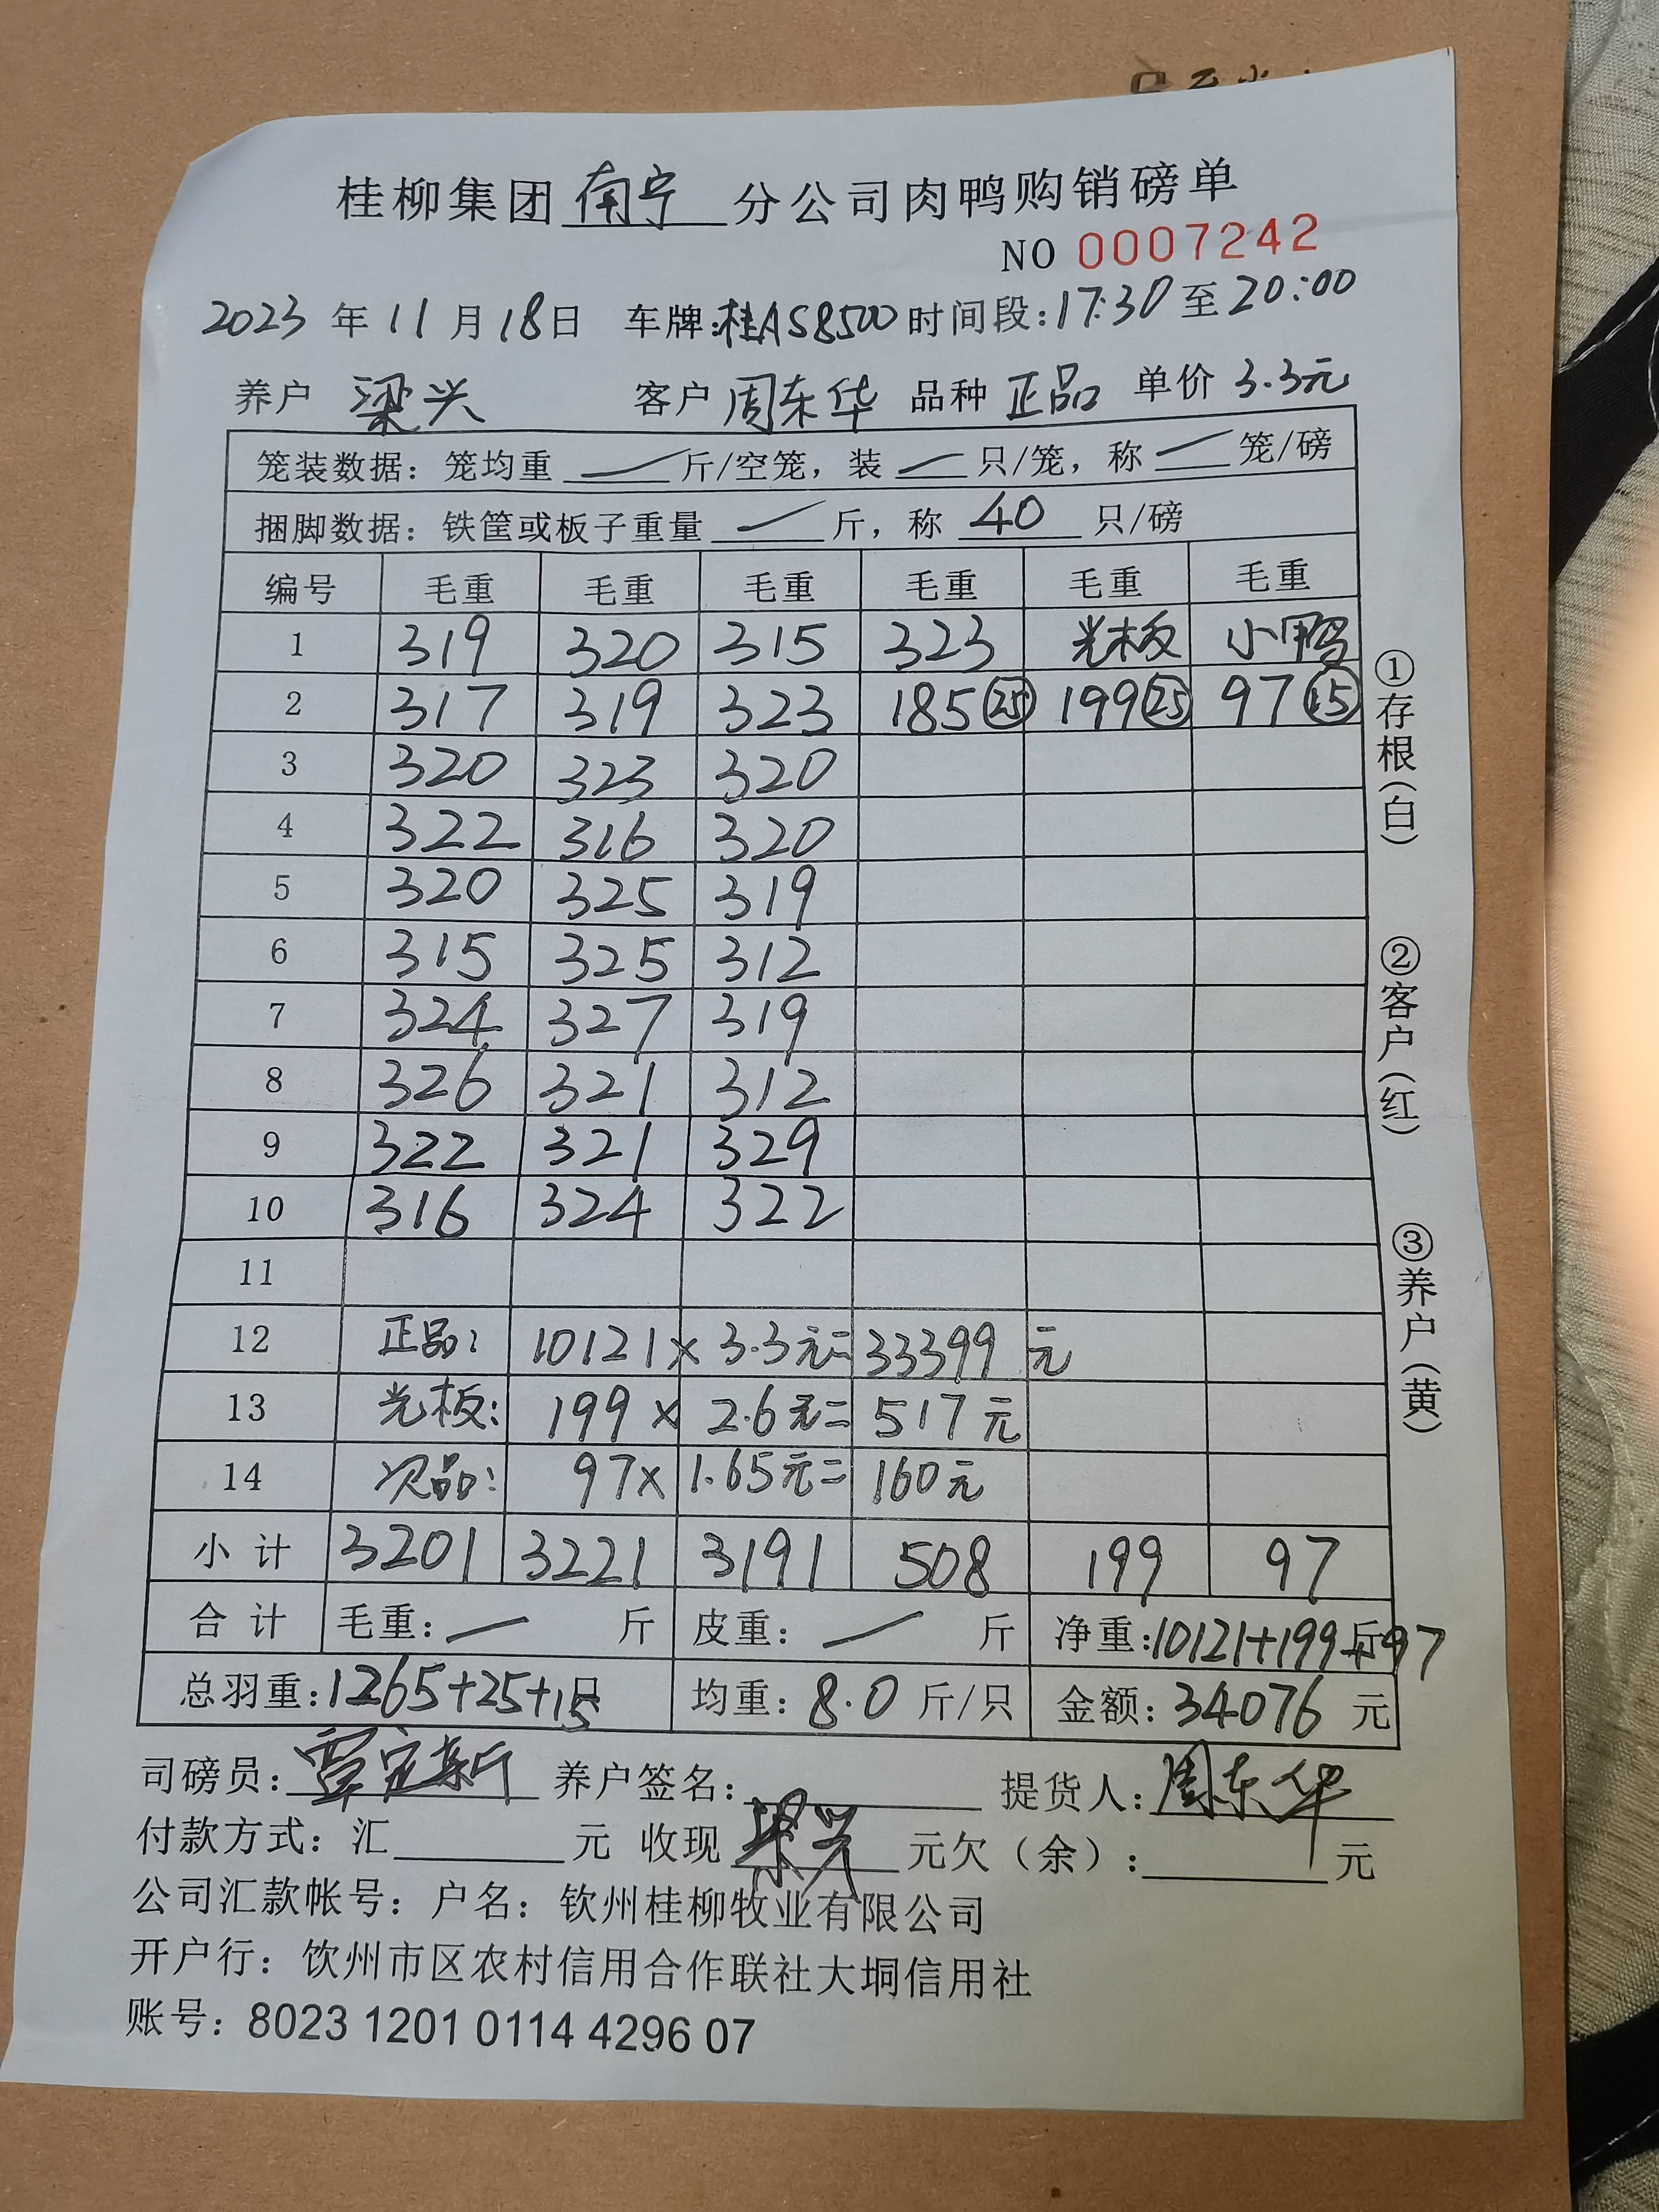 桂柳集团 南宁 分公司肉鸭购销磅单
NO 0007242
2023 年 11 月 18 日 车牌:桂AS8500 时间段:17:30 至 20:00
养户 梁兴 客户 周东华 品种 正品 单价 3.3元
笼装数据：笼均重 — 斤/空笼，装 — 只/笼，称 — 笼/磅
捆脚数据：铁筐或板子重量 — 斤，称 40 只/磅
编号 毛重 毛重 毛重 毛重 毛重 毛重
1 319 320 315 323 光板 小鸭
2 317 319 323 185㉕ 199㉕ 97⑮
3 320 323 320
4 322 316 320
5 320 325 319
6 315 325 312
7 324 327 319
8 326 321 312
9 322 321 329
10 316 324 322
11
12 正品: 10121 × 3.3元= 33399 元
13 光板: 199 × 2.6元= 517元
14 次品: 97 × 1.65元= 160元
小计 3201 3221 3191 508 199 97
合计 毛重: — 斤 皮重: — 斤 净重:10121+199斤+97
总羽重:1265+25+15只 均重: 8.0 斤/只 金额: 34076 元
司磅员: 覃定新 养户签名: 提货人: 周东华
付款方式: 汇 元 收现 梁兴 元欠（余）: 元
公司汇款帐号: 户名: 钦州桂柳牧业有限公司
开户行: 饮州市区农村信用合作联社大垌信用社
账号: 8023 1201 0114 4296 07
①存根(白)
②客户(红)
③养户(黄)